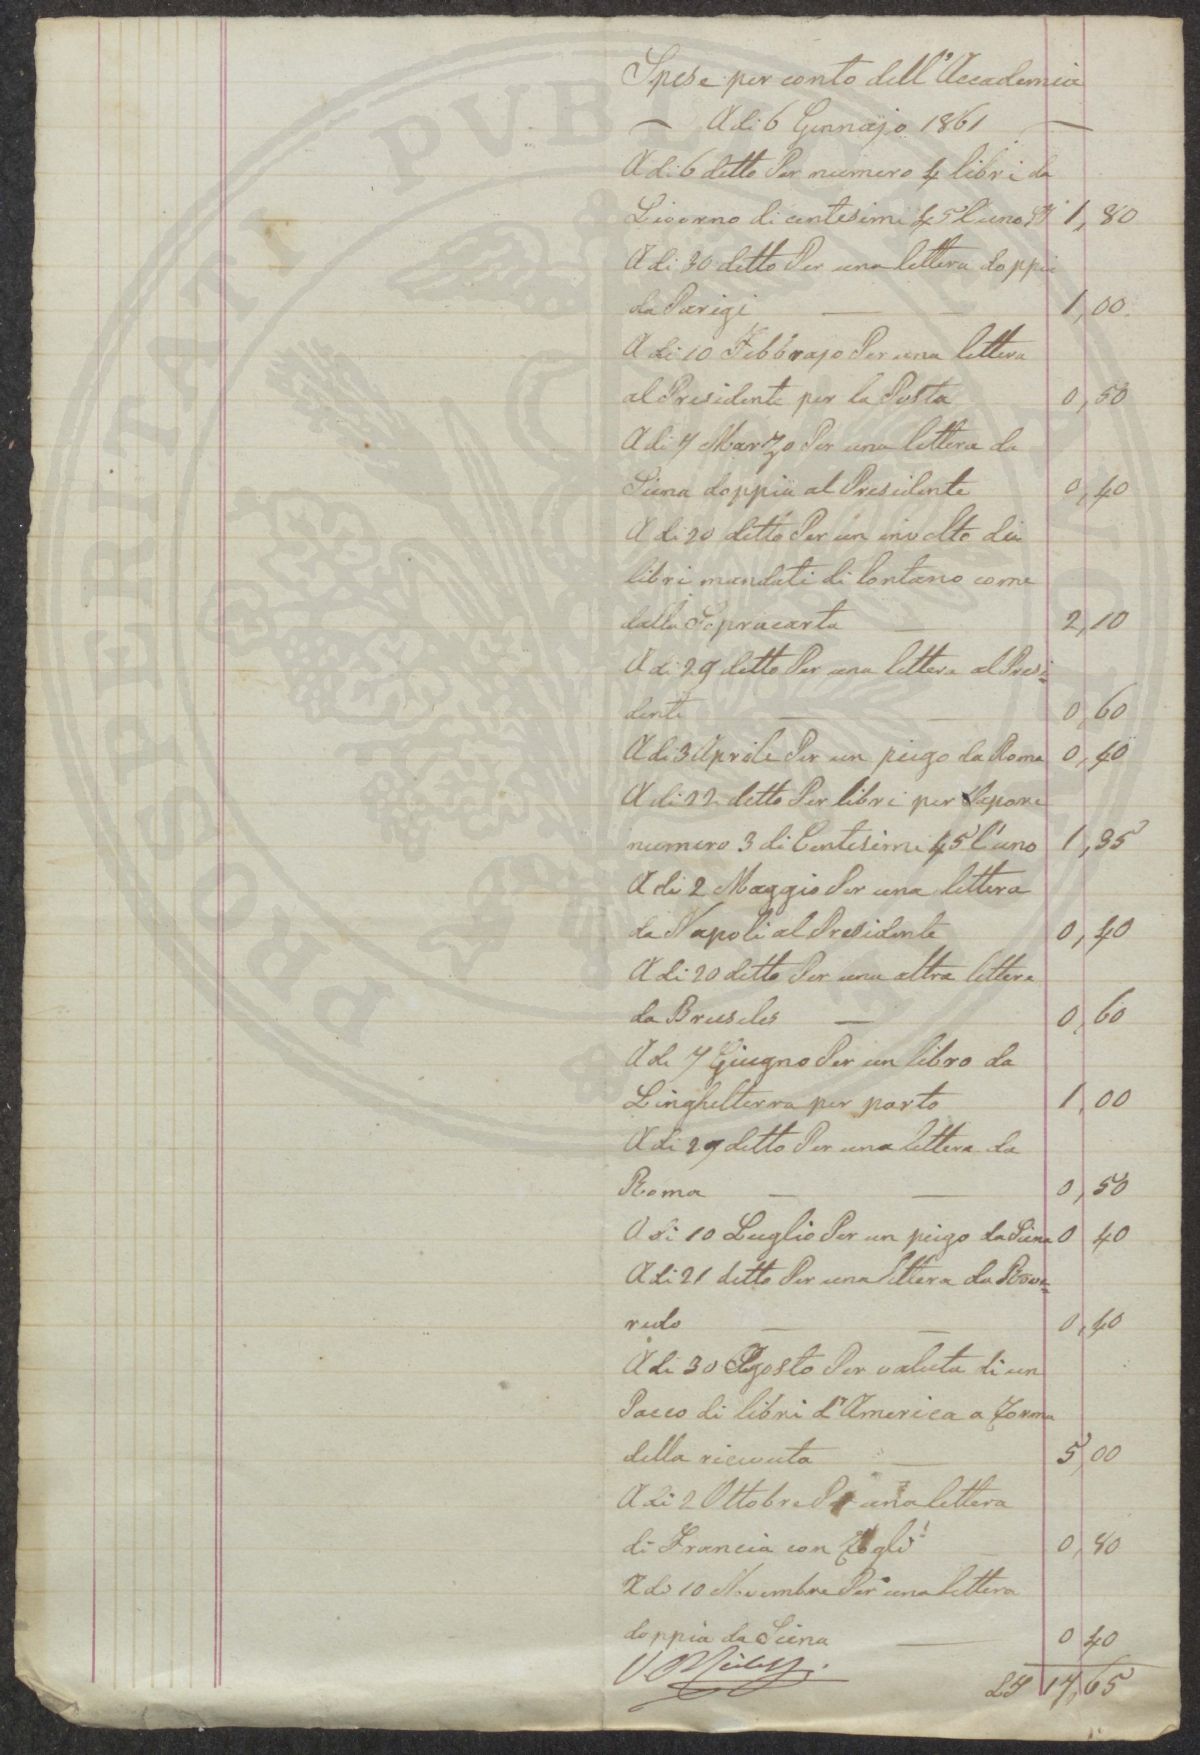 PROSPERITATI PVBLICAE
Spese per conto dell'Accademia
— A di 6 Gennajo 1861 —
A di 6 detto Per numero 4 libri da
Livorno di centesimi 45 l'uno 1,80
A di 30 detto Per una lettera doppia
da Parigi — — 1,00
A di 10 Febbrajo Per una lettera
al Presidente per la Posta 0,50
A di 7 Marzo Per una lettera da
Siena doppia al Presidente 0,40
A di 20 detto Per un involto di
libri mandati di lontano come
dalla Sopracarta — 2,10
A di 29 detto Per una lettera al Presi=
dente — — 0,60
A di 3 Aprile Per un piego da Roma 0,40
A di 22 detto Per libri per Vapore
numero 3 di Centesimi 45 l'uno 1,35
A di 2 Maggio Per una lettera
da Napoli al Presidente 0,40
A di 20 detto Per una altra lettera
da Bruseles — 0,60
A di 7 Giugno Per un libro da
Linghelterra per porto 1,00
A di 29 detto Per una lettera da
Roma — — 0,50
A di 10 Luglio Per un peigo da Siena 0 40
A di 21 detto Per una lettera da Rove=
redo — — 0,40
A di 30 Agosto Per valuta di un
Pacco di libri d'America a forma
della ricevuta — 5,00
A di 2 Ottobre Per una lettera
di Francia con fogli 0,80
A di 10 Novembre Per una lettera
doppia da Siena — 0 40
17,65